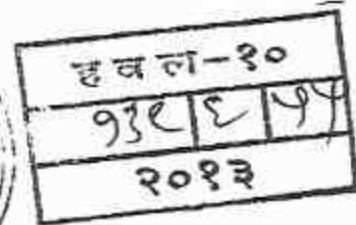 ह व ल-१०
१३९ ६ ५५
२०१३